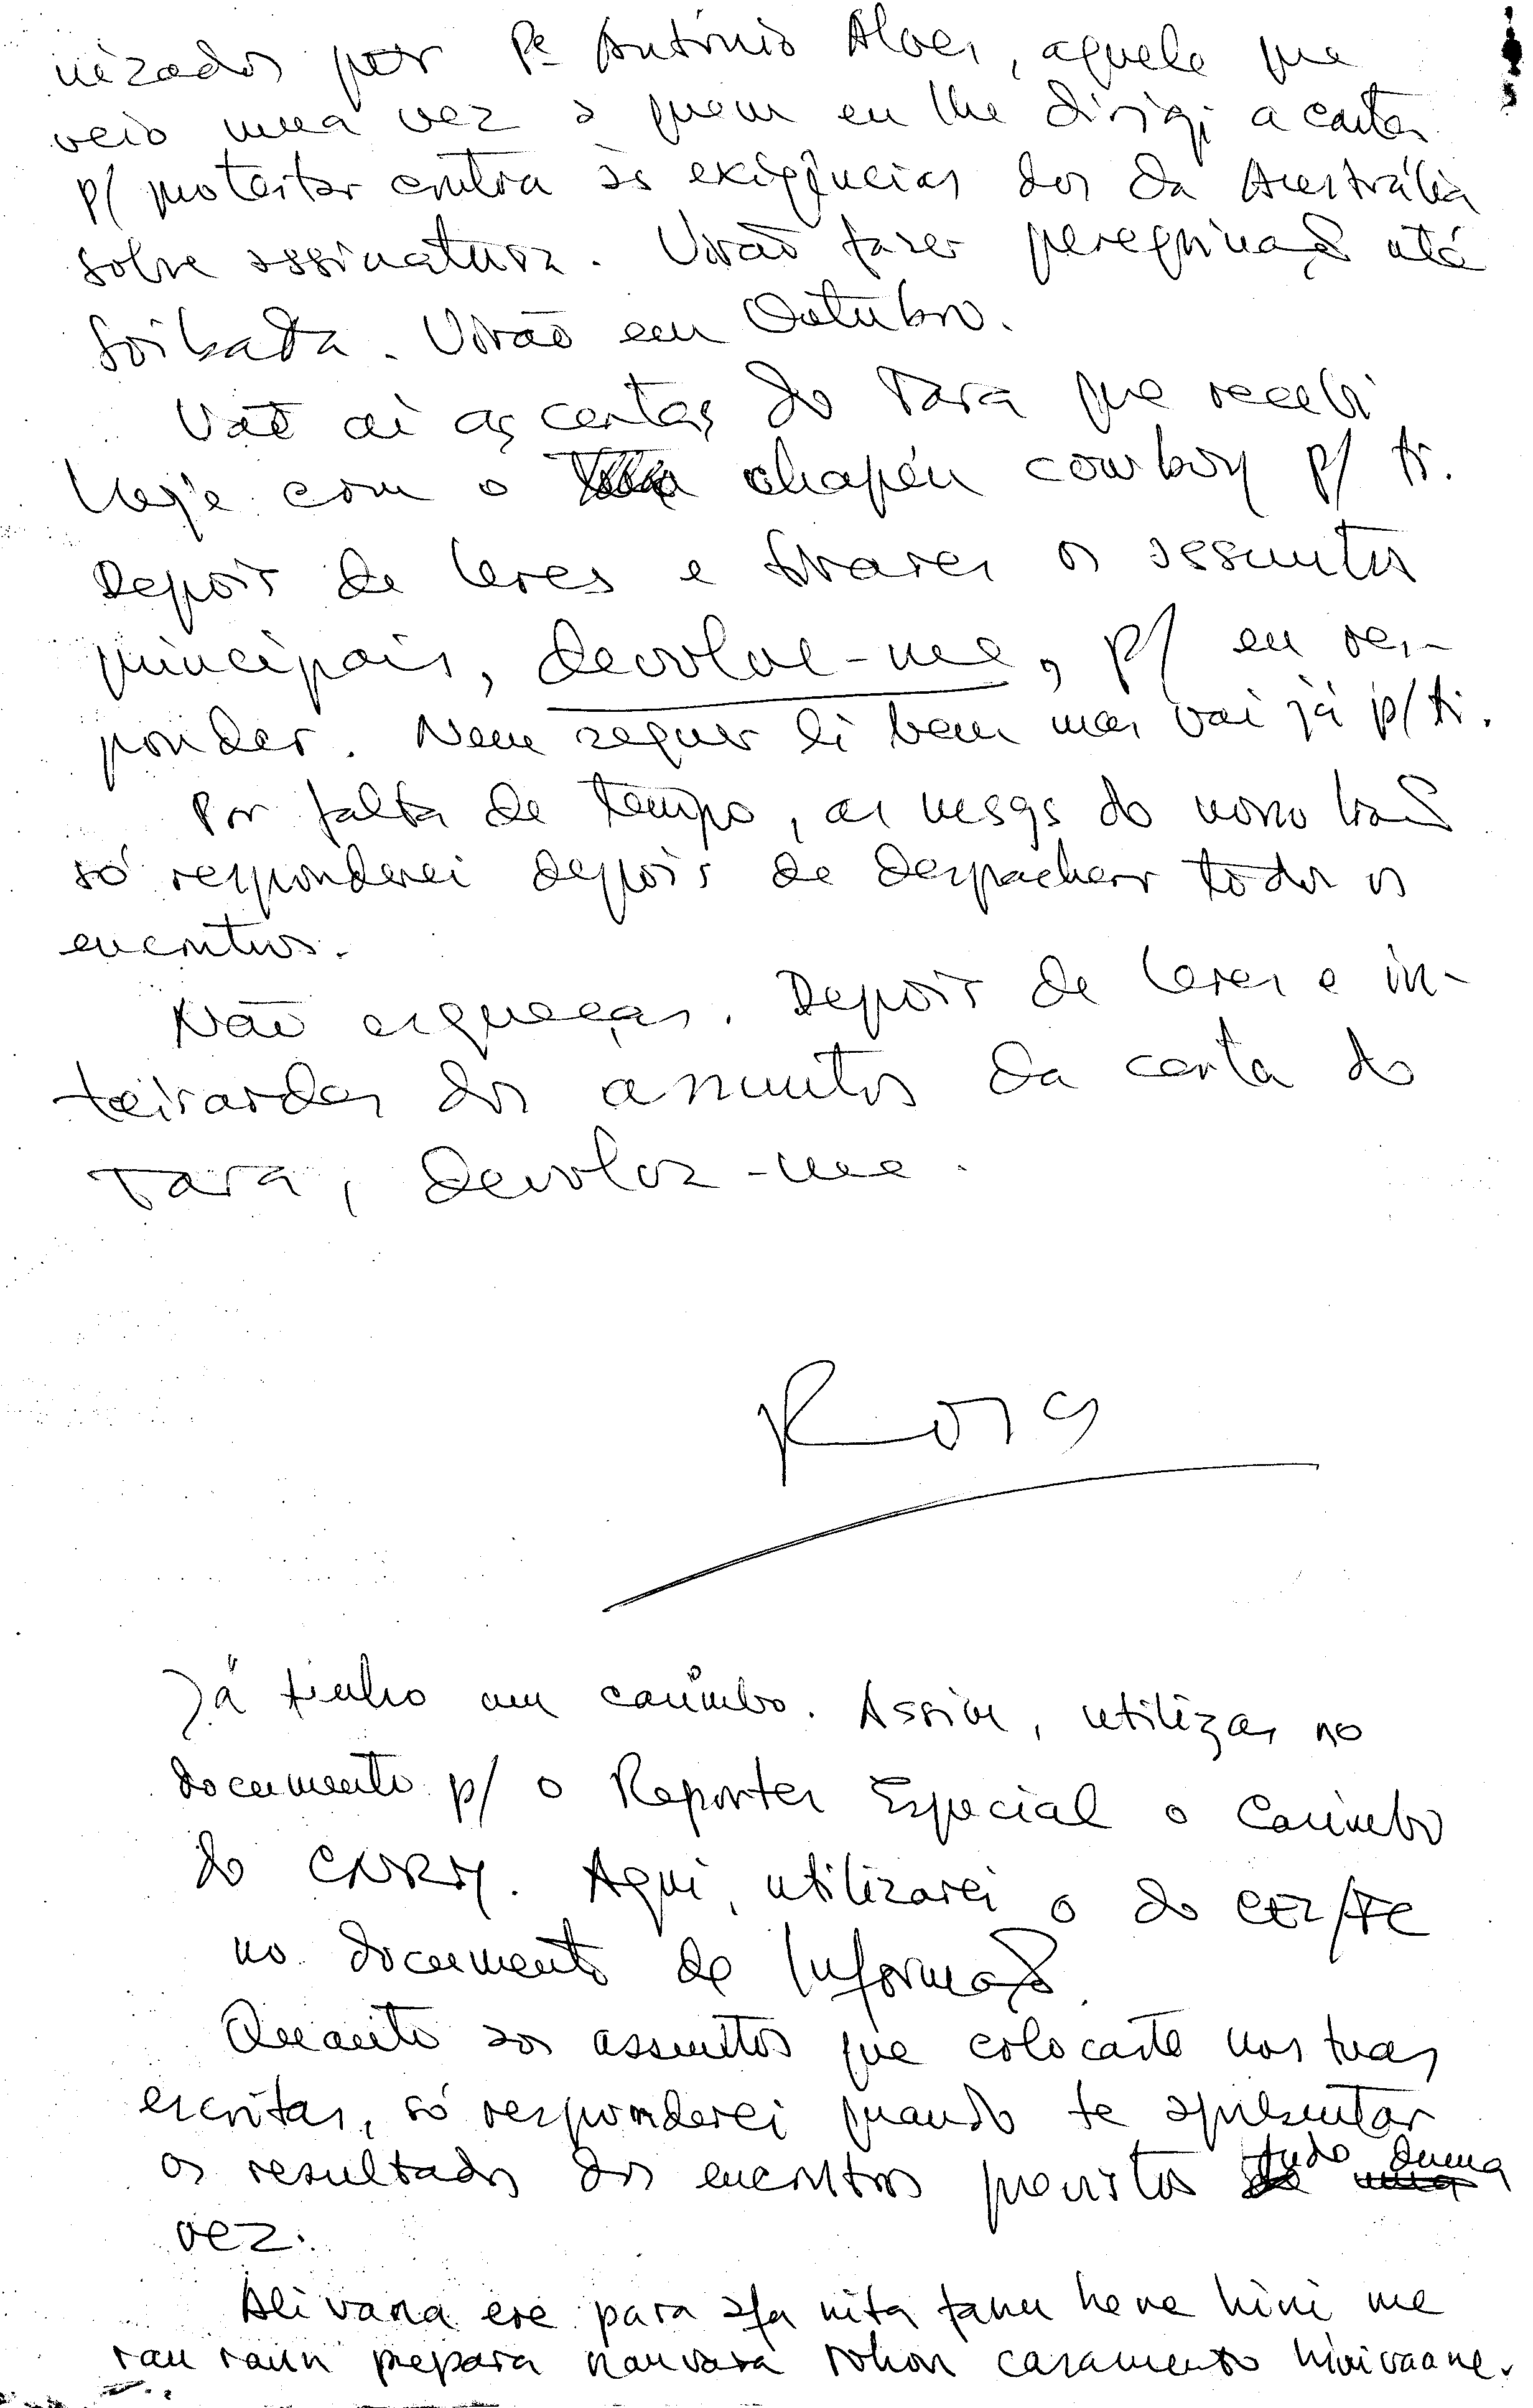 nizados por Pe António Alves, aquele que
veio uma vez a quem eu lhe dirigi a carta
p/ protestar contra às exigências dos da Austrália
sobre assinatura. Virão fazer peregrinação até
Soibada. Virão em Outubro.
Vão aí as cartas do Tara que recebi
hoje com o chapéu cowboy p/ ti.
Depois de leres e tirares os assuntos
principais, devolve-me, p/ eu res-
ponder. Nem sequer li bem mas vai já p/ ti.
Por falta de tempo, as msgs do nosso irmão
só responderei depois de despachar todos os
encontros.
Não esqueças. Depois de leres e in-
teirardes dos assuntos da carta do
Tara, devolva-me.
Já tenho um carimbo. Assim, utilizas no
documento p/ o Reporter Especial o Carimbo
do CNRM. Aqui, utilizarei o do CEL/FE
no documento de Informação.
Quanto aos assuntos que colocaste nas tuas
escritas, só responderei quando te apresentar
os resultados dos encontros previstos tudo duma
vez.
Ali vana ere para afa nita fanu hene hini me
rau raun prepara nauvara rohon casamento hinivaane.